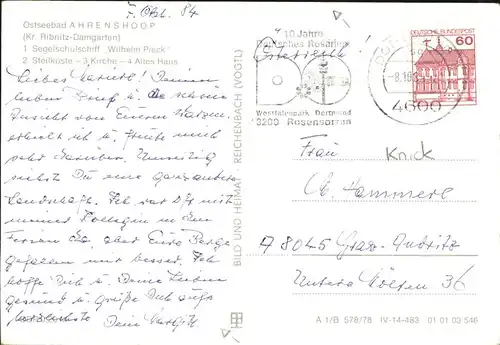 Ostseebad AHRENSHOOP
(Kr. Ribnitz-Damgarten)
1 Segelschulschiff „Wilhelm Pieck"
2 Steilküste – 3 Kirche – 4 Altes Haus
F. Okt. 84
Deinen
lieben Brief u. die schöne
Ansicht von Eurem
erhielt ich u. freute mich
sehr darüber.
siehst Du eine ganz andere
Landschaft. Ich war dfs mit
meiner Kollegin in den
Ferien da, aber Eure Berge
gefallen mir besser. Ich
hoffe Dich u. Deine Lieben
gesund u. grüße Dich aufs
herzlichste
Dein
BILD UND HEIMAT REICHENBACH (VOGTL)
10 Jahre
Deutsches Rosarium
Westfalenpark Dortmund
3200 Rosensorten
DEUTSCHE BUNDESPOST
60
4600
Österreich!
Frau
Knick
Ch. Hammerl
A 8045 Graz-Andritz
Untere 36
A 1/B 578/78 IV-14-483 01 01 03 546